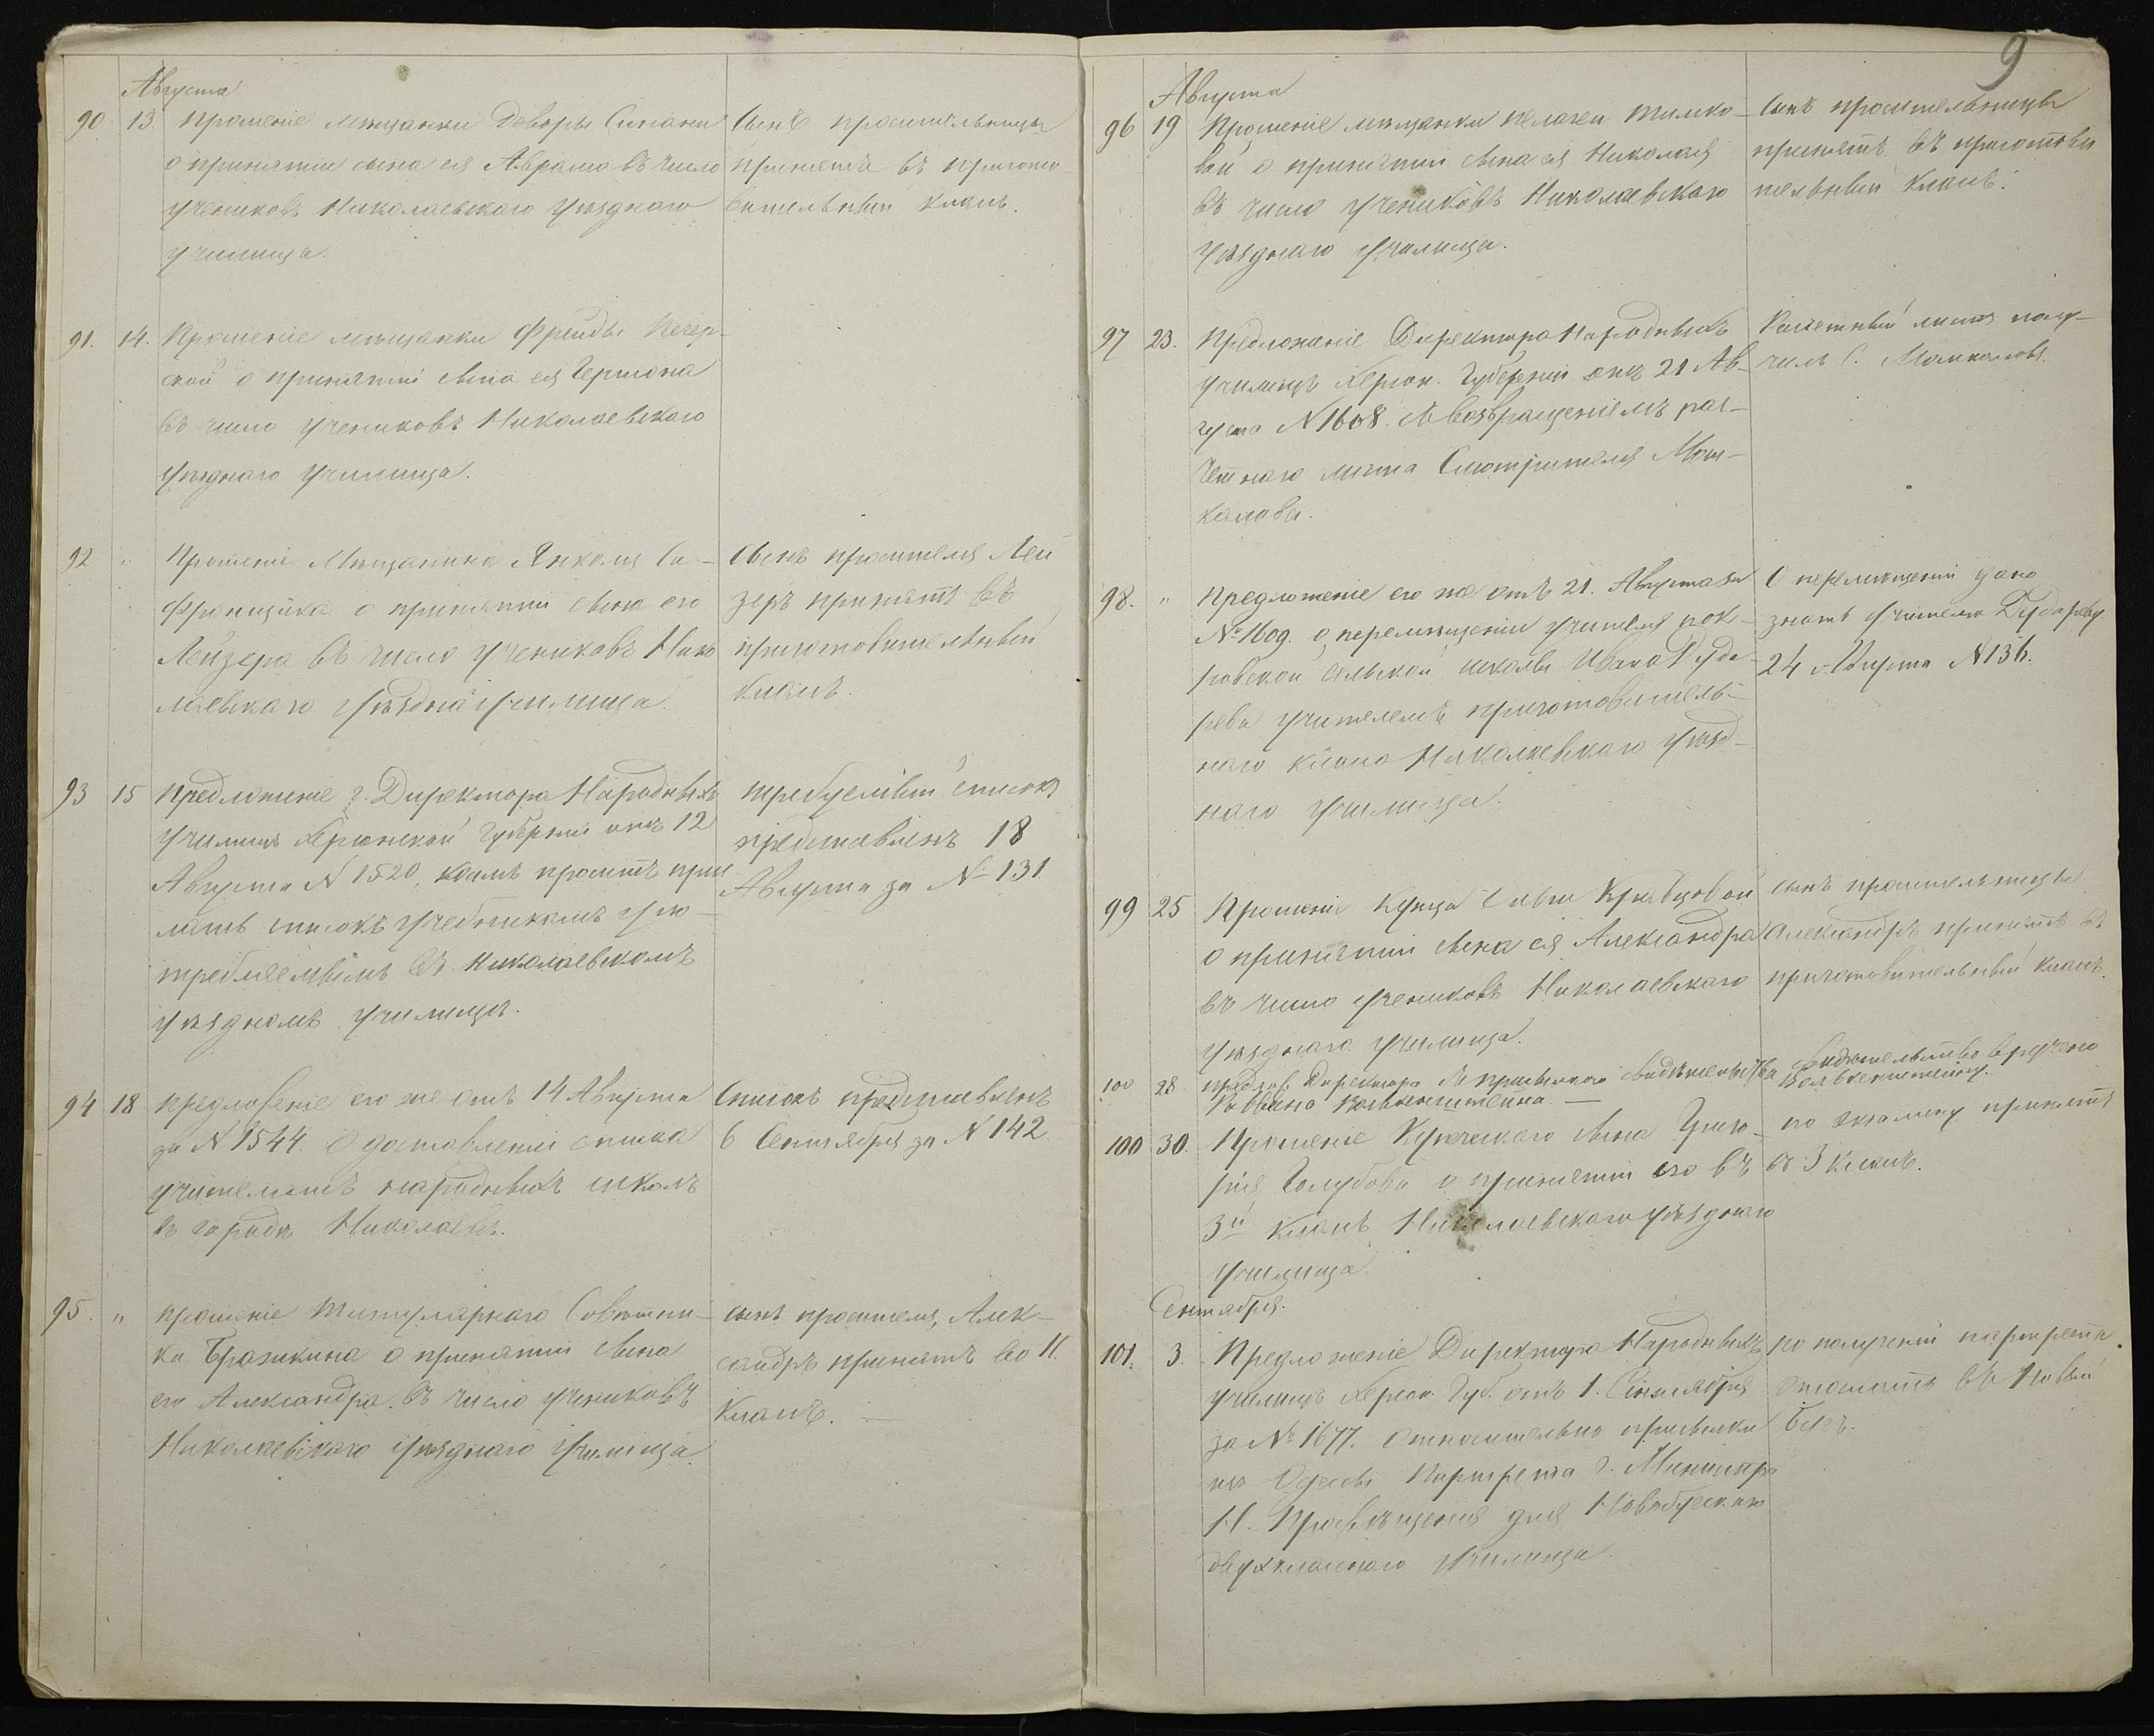 Августа
90. 13. Прошеніе мѣщанки Деворы Синани
о принятіи сына ея Аврама въ число
учениковъ Николаевскаго уѣзднаго
училища.
Сынъ просительницы
принятъ въ пригото
вительный классъ.
91. 14. Прошеніе мѣщанки Фрейды Печер-
ской о принятіи сына ея Гершона
въ число учениковъ Николаевскаго
уѣзднаго училища.
92 " Прошеніе Мѣщанина Янкеля Са-
о принятіи сына его
Лейзера въ число учениковъ Нико
лаевскаго уѣздна училища.
Сынъ просителя Лей
зеръ принятъ въ
приготовительный
классъ.
93 15 Предложеніе г. Директора Народныхъ
училищъ Херсонской Губерніи отъ 12
Августа N 1520, коимъ проситъ при
лать списокъ учебникамъ упо-
требляемымъ въ Николаевскомъ
уѣздномъ училищѣ.
требуемый списокъ
представленъ 18
Августа за № 131
94 18 Предложеніе его же отъ 14 Августа
за N 1544. О доставленіи списка
учителямъ народныхъ школъ
въ городѣ Николаевѣ.
Списокъ представленъ
6 Сентября за N 142
95. " Прошеніе Титулярнаго Совѣтни-
ка Бражкина о принятіи сына
его Александра въ число учениковъ
Николаевскаго уѣзднаго училища.
сынъ просителя, Алек-
сандръ принятъ во II.
Классъ. —
9
Августа
96 19 Прошеніе мѣщанки Пелагеи Тимко-
вой о принятіи сына ея Николая
въ число учениковъ Николаевскаго
уѣзднаго училища.
Сынъ просительницы
принятъ въ приготови
тельный классъ.
97 23. Предложеніе Директора Народныхъ
училищъ Херсон. Губерніи отъ 21 Ав-
густа N 1608. съ возвращеніемъ рас-
четнаго листа Смотрителя Маш-
калова.
Расчетный листъ полу-
чилъ С. Машкаловъ.
98. " Предложеніе его же отъ 21. Августа за
№ 1609. о перемѣщеніи учителя пок-
ровской сельской школы Ивана Гуда-
рева учителемъ приготовитель-
наго класса Николаевскаго уѣзд-
наго училища.
О перемѣщеніи дано
знать учителю Гудареву
24 Августа N 136.
99 25 Прошеніе Купца Кравцовой
о принятіи сына ея Александра
въ число учениковъ Николаевскаго
уѣзднаго училища.
сынъ просительницы
Александръ принятъ въ
приготовительный классъ.
100 28. Предлож. Директора съ присылкою свидѣтельства
Свидѣтельство вручено
100 30. Прошеніе Купеческаго сына Григо-
рія Голубова о принятіи его въ
3й классъ Николаевскаго уѣзднаго
училища.
по экзамену принятъ
въ 3 классъ.
Сентября.
101. 3. Предложеніе Директора Народныхъ
училищъ Херсон. Губ. отъ 1. Сентября
за № 1677. Относительно присылки
изъ Одессы Портрета г. Министра
Н. Просвѣщенія для Новобугскаго
двухкласнаго училища.
по полученіи портрета
отослать въ Новый
Бугъ.